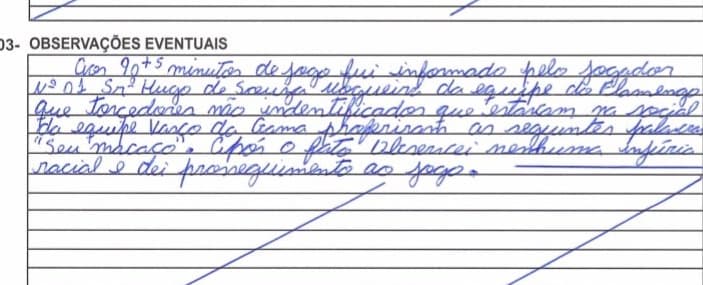 03- OBSERVAÇÕES EVENTUAIS
Aos 90+5 minutos de jogo fui informado pelo jogador
Nº 01 Sr. Hugo de Souza Nogueira da equipe do Flamengo
que torcedores não indentificados que estavam na social
da equipe Vasco da Gama proferiram as seguintes palavras
"Seu macaco". Após o fato presenciei nenhuma injúria
racial e dei prosseguimento ao jogo.